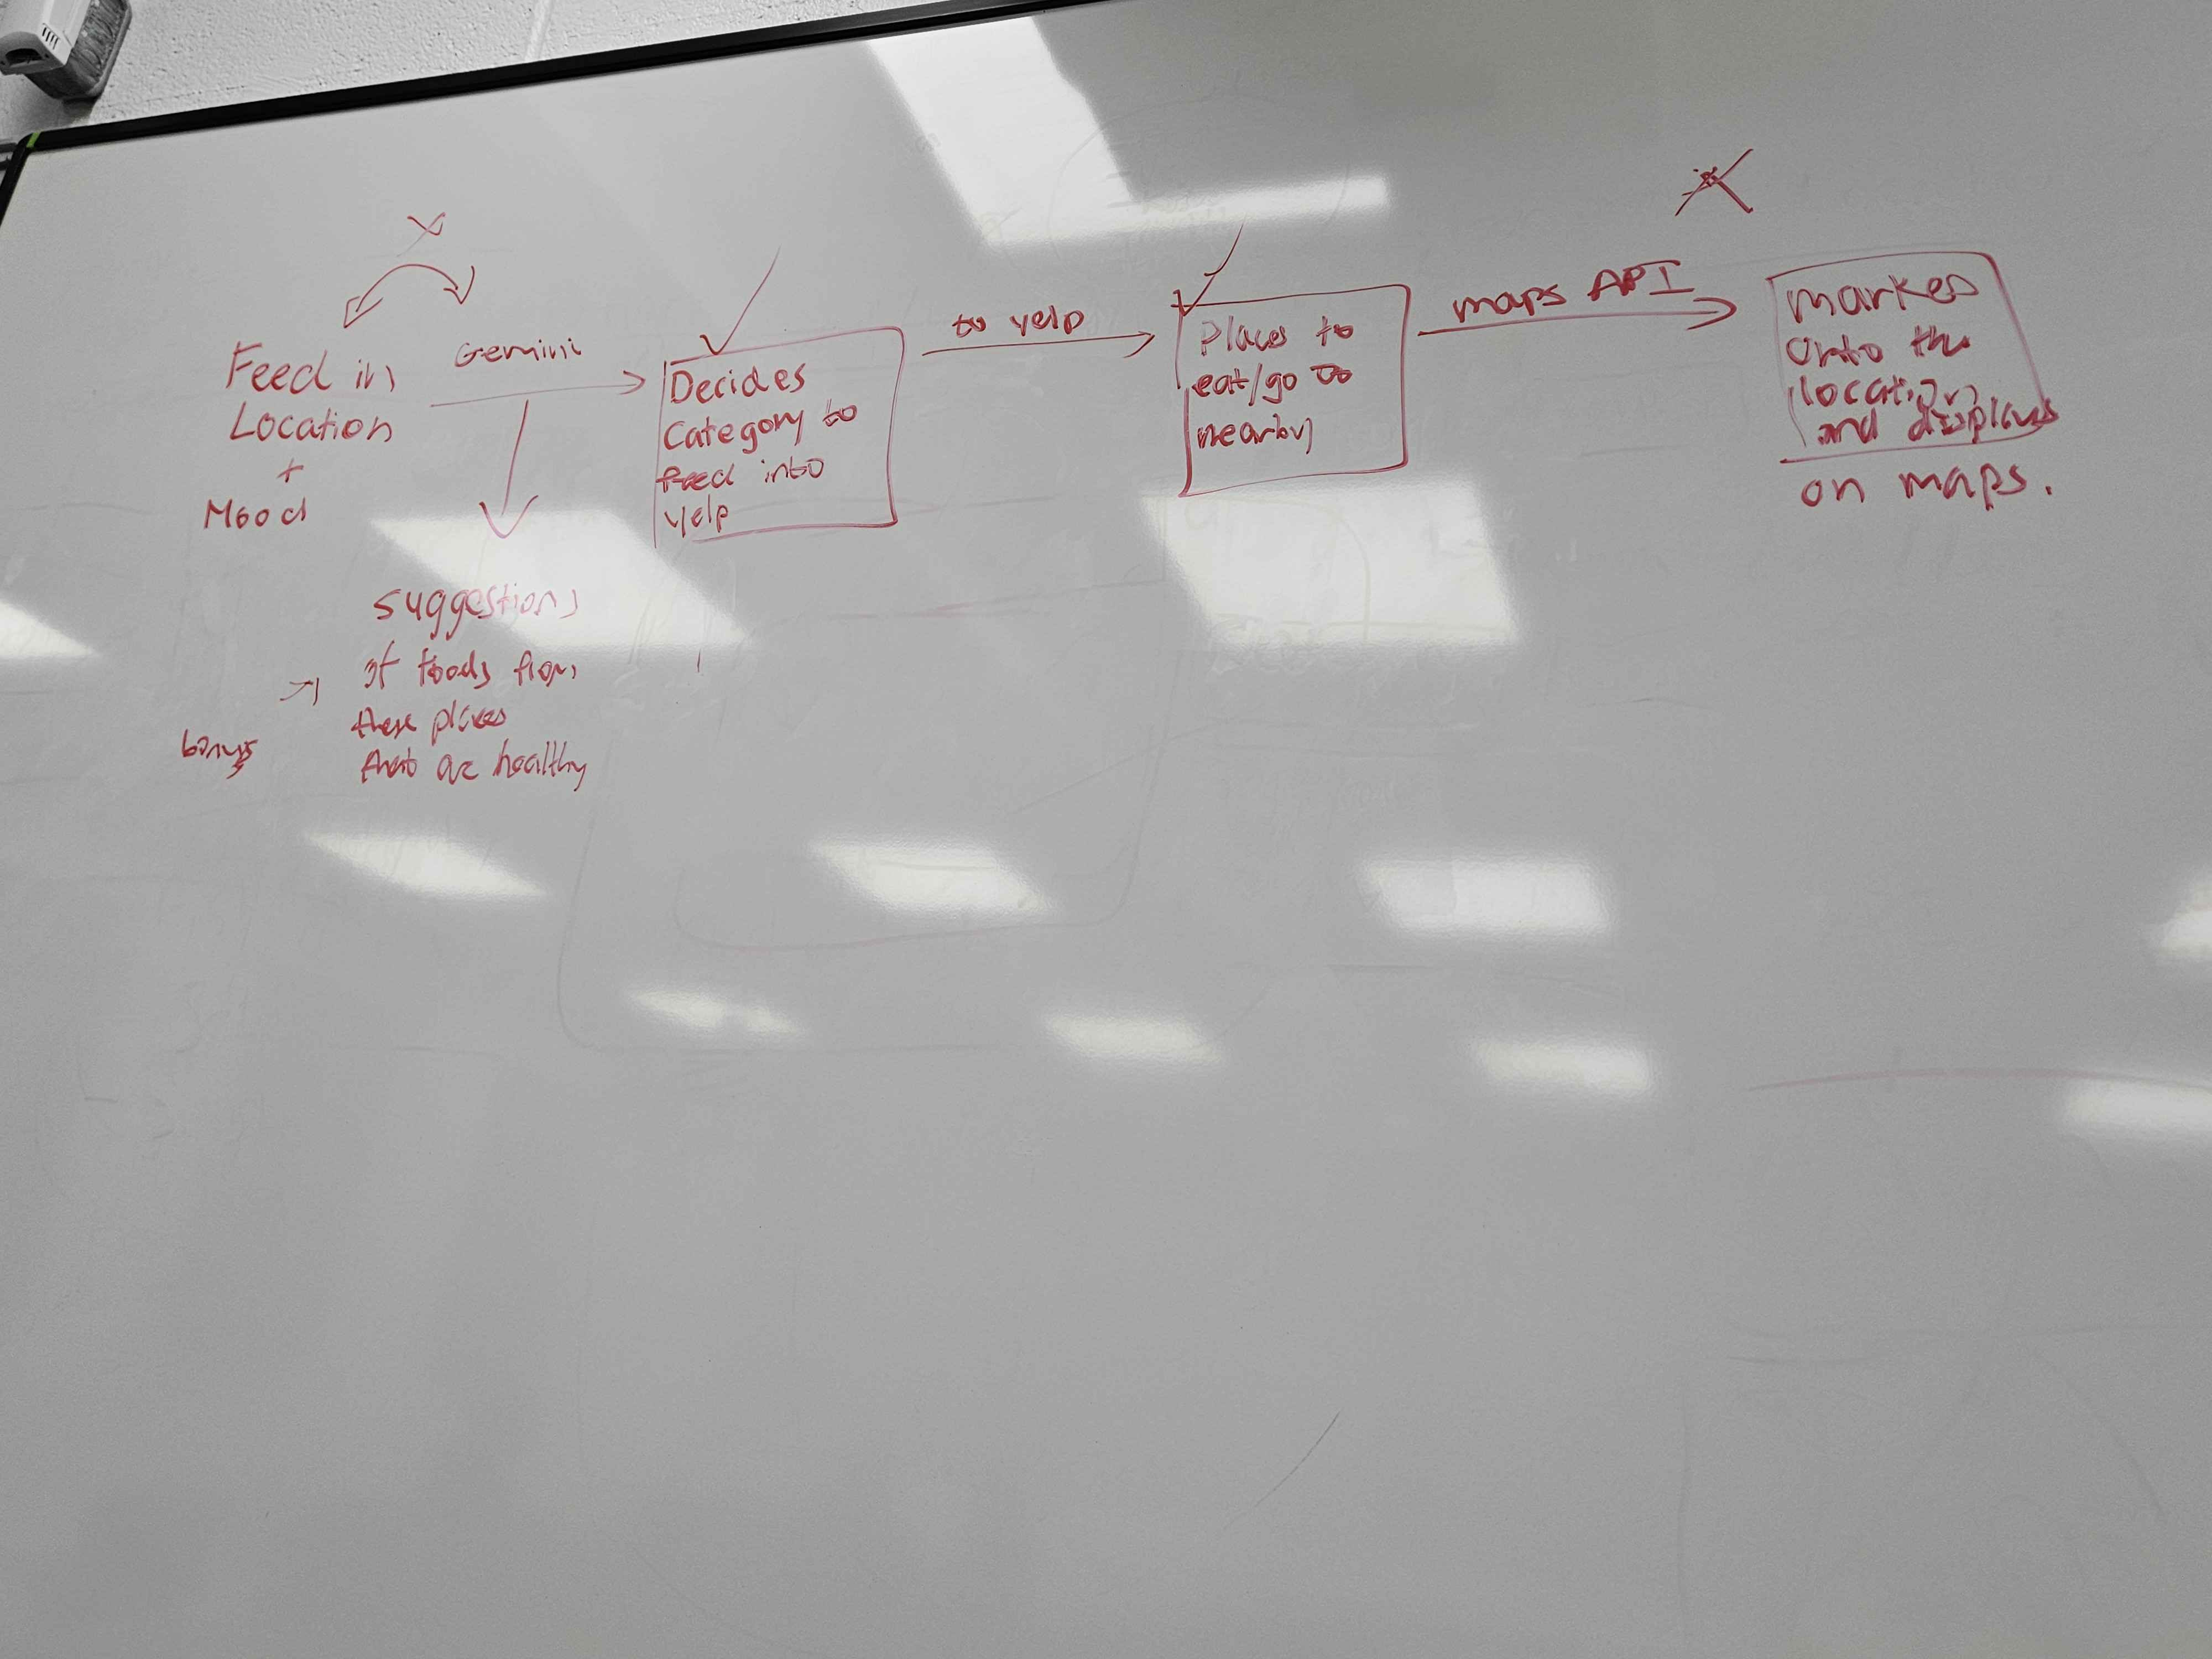 Feed in
Location
+
Mood
Gemini
Decides
Category to
feed into
yelp
to yelp
Places to
eat/go to
nearby
maps API
markes
onto the
location
and displays
on maps.
suggestions
of foods from
these places
that are healthy
bonus